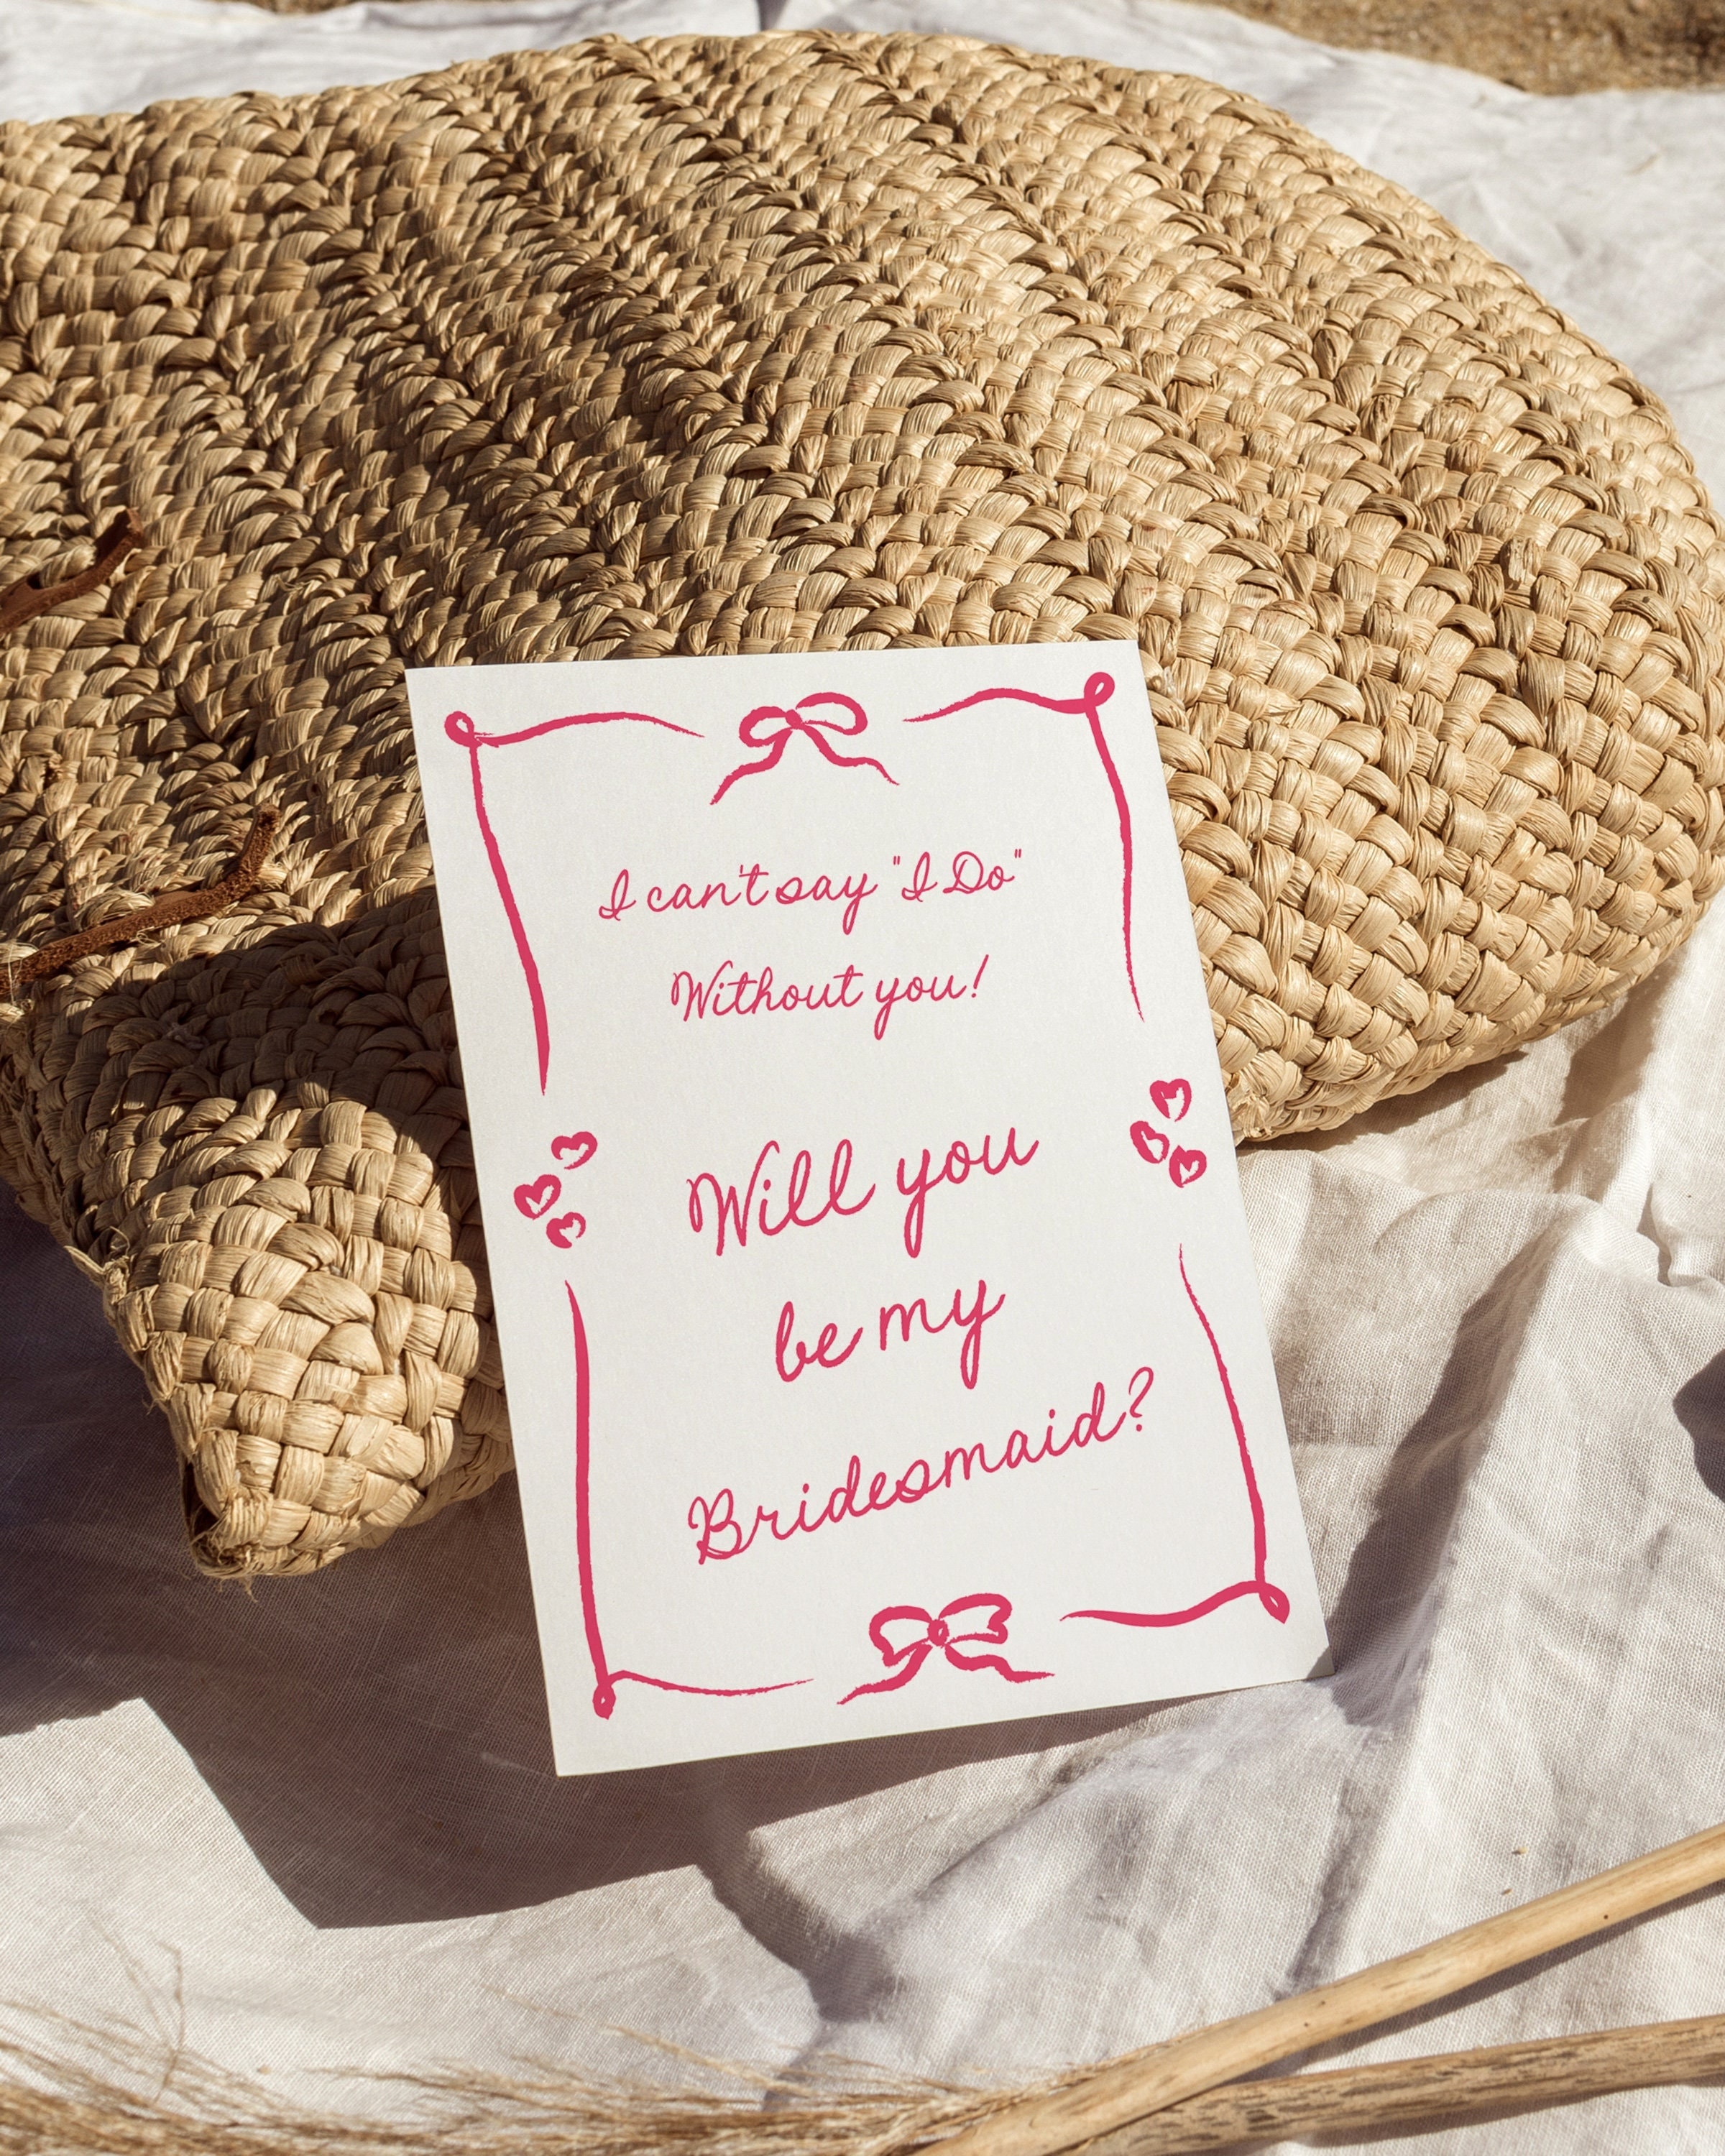 I can't say "I Do"
Without you!
Will you
be my
Bridesmaid?